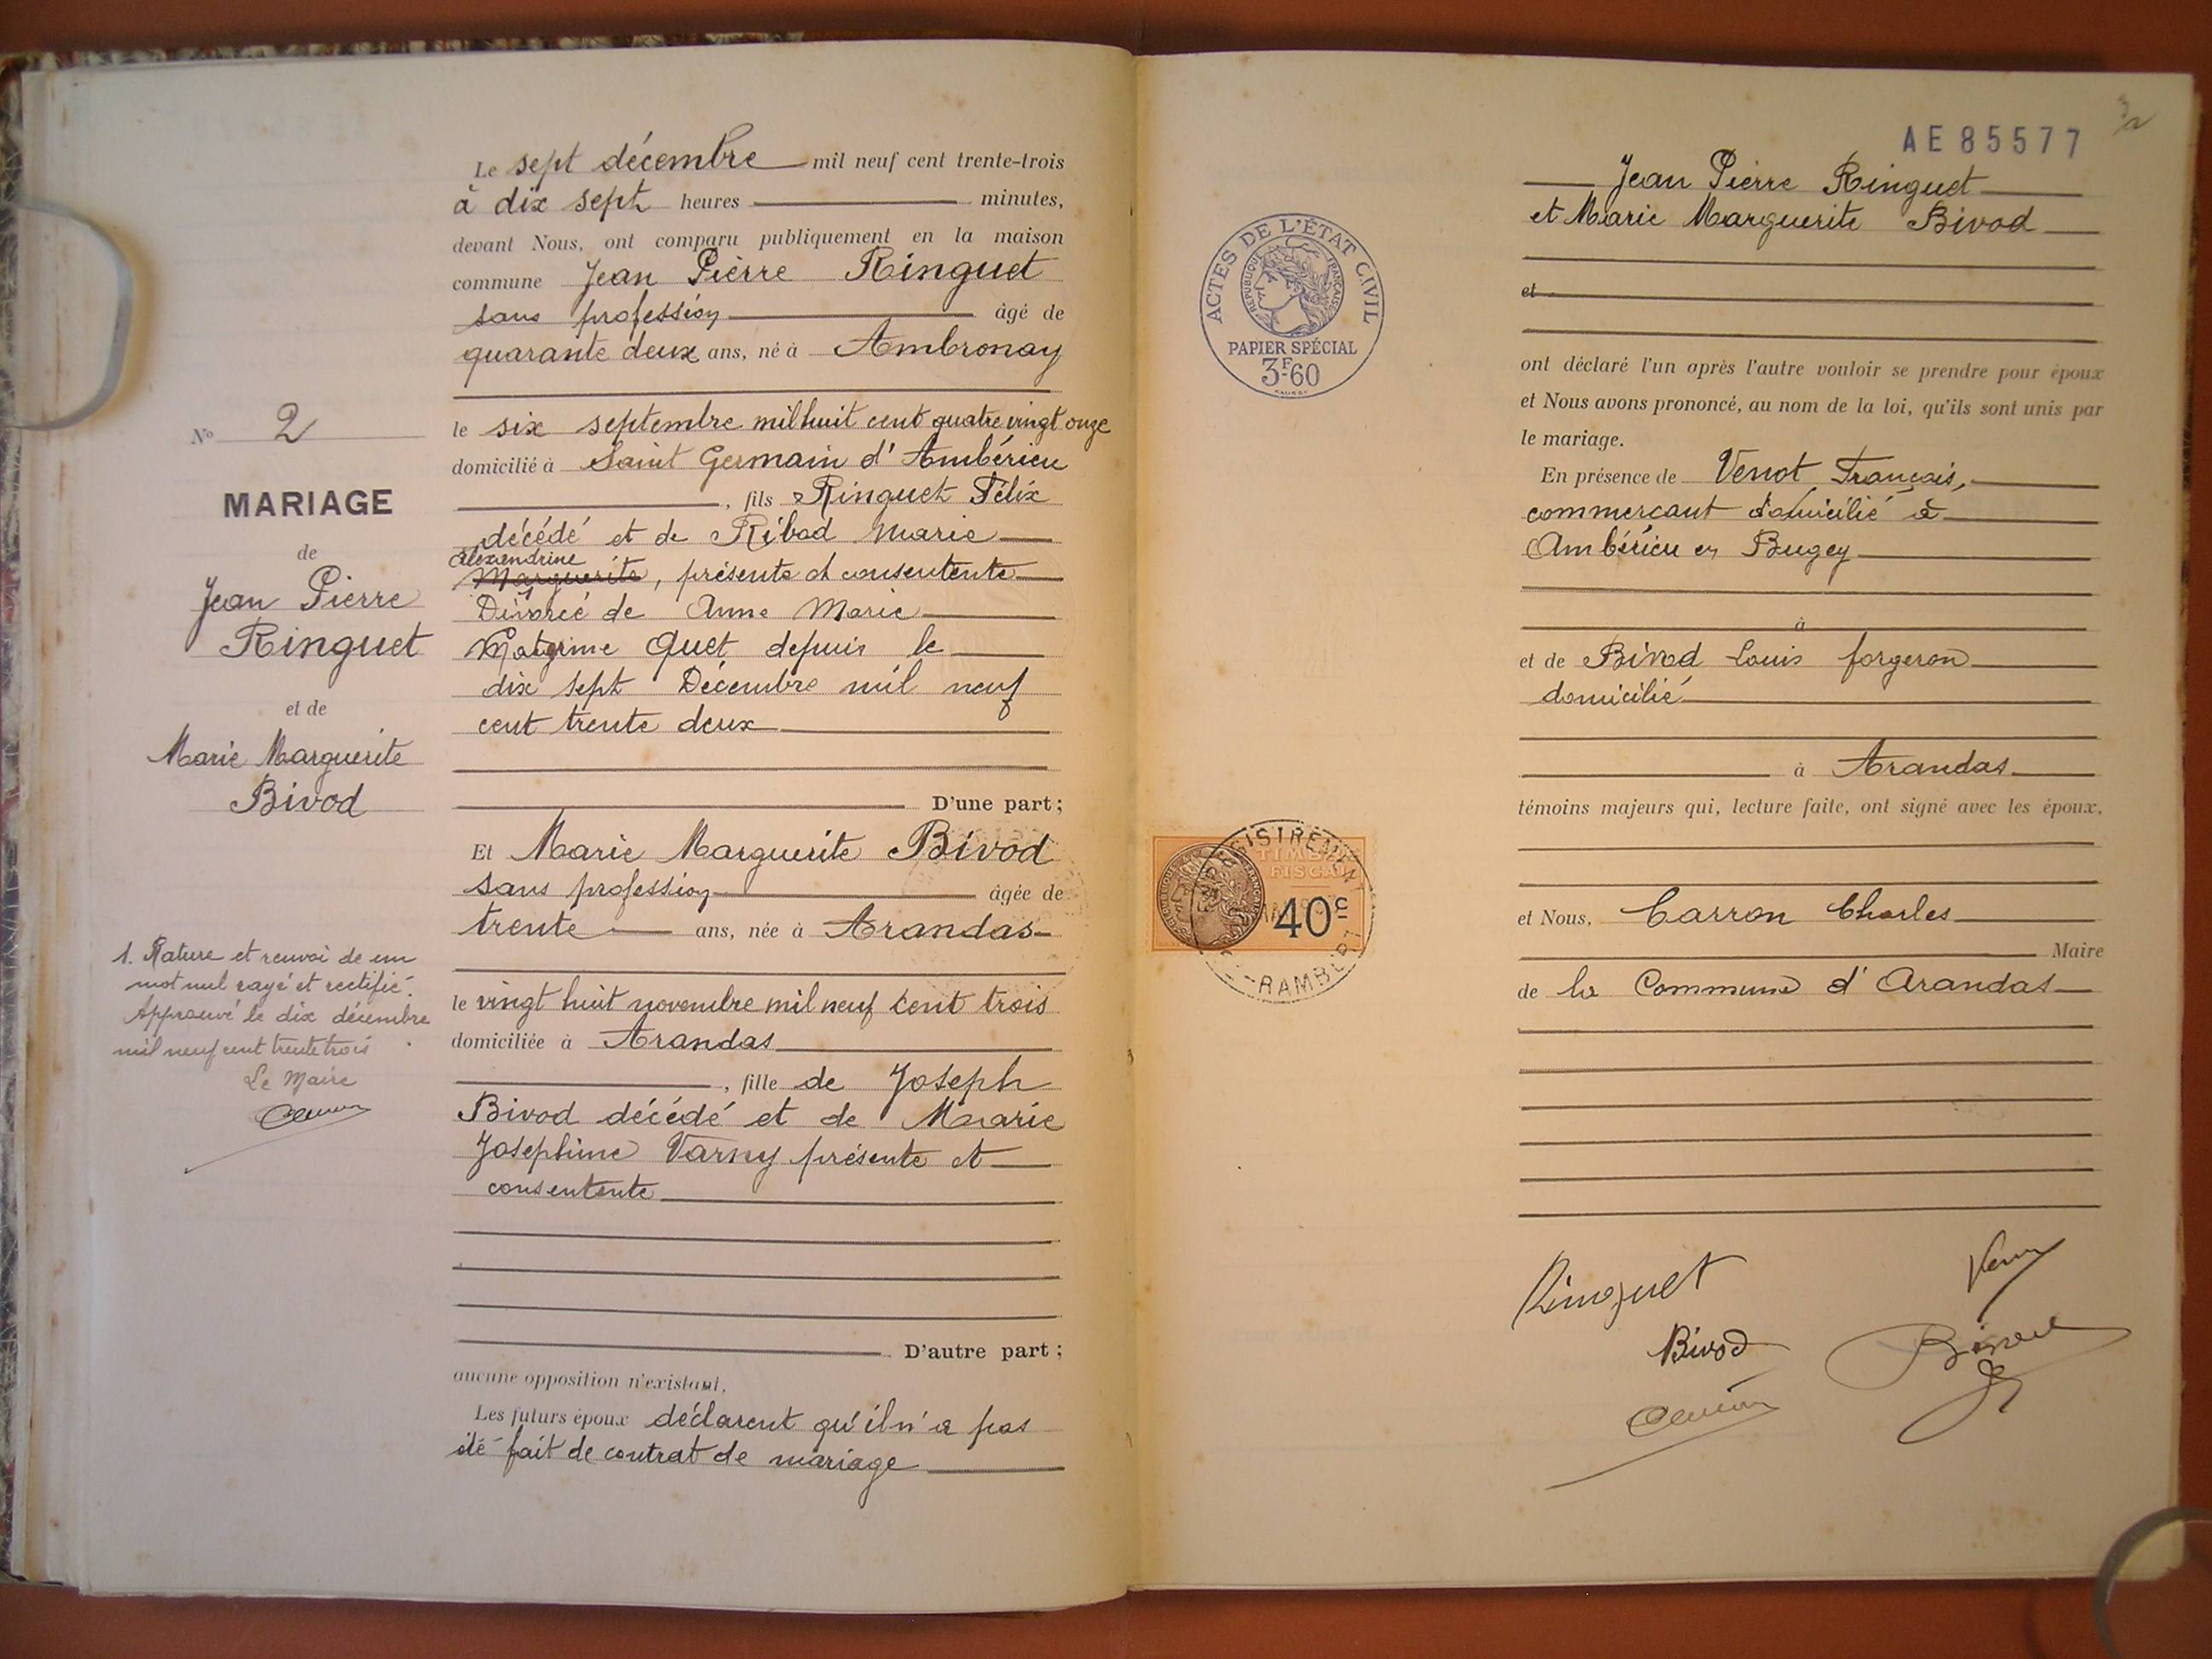 Le sept décembre mil neuf cent trente-trois
à dix sept heures minutes,
devant Nous, ont comparu publiquement en la maison
commune Jean Pierre Ringuet
sans profession âgé de
quarante deux ans, né à Ambronay
le six septembre mil huit cent quatre vingt onze
domicilié à Saint Germain d'Ambérieu
, fils Ringuet Félix
décédé et de Ribod Marie
Alexandrine
Marguerite, présente et consentente
Divorcé de Anne Marie
Quet depuis le
dix sept Décembre mil neuf
cent trente deux
D'une part;
Et Marie Marguerite Bivod
sans profession âgée de
trente ans, née à Arandas
le vingt huit novembre mil neuf cent trois
domiciliée à Arandas
, fille de Joseph
Bivod décédé et de Marie
Josephine Varny présente et
consentente
D'autre part;
aucune opposition n'existant.
Les futurs époux déclarent qu'il n'a pas
été fait de contrat de mariage
No 2
MARIAGE
de
Jean Pierre
Ringuet
et de
Marie Marguerite
Bivod
1. Rature et renvoi de un
mot nul rayé et rectifié.
Approuvé le dix décembre
mil neuf cent trente trois
Le Maire
AE 85577
Jean Pierre Ringuet
et Marie Marguerite Bivod
et
ont déclaré l'un après l'autre vouloir se prendre pour époux
et Nous avons prononcé, au nom de la loi, qu'ils sont unis par
le mariage.
En présence de Venot Français,
commerçant domicilié à
Ambérieu en Bugey
à
et de Bivod Louis forgeron
domicilié
à Arandas
témoins majeurs qui, lecture faite, ont signé avec les époux,
et Nous, Carron Charles
Maire
de la Commune d'Arandas
Ringuet
Bivod
ACTES DE L'ÉTAT CIVIL
RÉPUBLIQUE FRANÇAISE
PAPIER SPÉCIAL
3F60
TIMBRE
FISCAL
40c
ENREGISTREMENT
RAMBERT